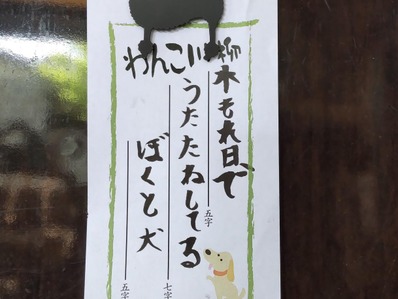 わんこ川柳
木もれ日で
五字
うたたねしてる
七字
ぼくと犬
五字